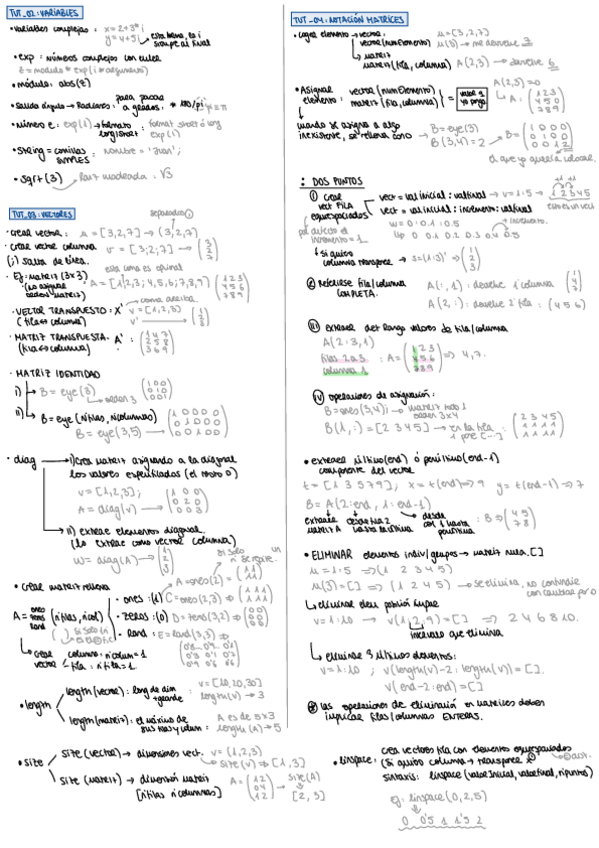 TUT_02: VARIABLES
• Variables complejas: x = 2+3*i
y = 4+5i → esta buena, la i siempre al final
• exp: números complejos con euler
z = modulo * exp(i*argumento)
• módulo: abs(z)
• Salida ángulo → Radianes: para pasar a grados: * 180/pi
• número e: exp(1) → formato long/short: format short ó long
exp(1)
• string = comillas SIMPLES: nombre = 'Juan';
• sqrt(3) → Raíz cuadrada: √3
TUT_03: VECTORES
• Crear vector: A = [3,2,7] → (3,2,7)
separados ,
• Crear vector columna v = [3;2;7] → (3 2 7)
(;) salta de línea.
• Ej: matriz (3x3) A = [1,2,3; 4,5,6; 7,8,9] (1 2 3
4 5 6
7 8 9)
• VECTOR TRANSPUESTO: X' v = [1,2,3]
(fila ↔ columna) v'
coma arriba.
• MATRIZ TRANSPUESTA. A': (1 4 7
(fila ↔ columna) 2 5 8
3 6 9)
• MATRIZ IDENTIDAD
i) → B = eye(3) → orden 3
ii) → B = eye(nºfilas, nºcolumnas) (1 0 0 0 0
0 1 0 0 0
B = eye(3,5) → 0 0 1 0 0)
• diag → i) crea matriz asignando a la diagonal
los valores especificados (el resto 0)
v = [1,2,3];
A = diag(v) → (1 0 0
0 2 0
0 0 3)
→ ii) extrae elementos diagonal.
(lo extrae como vector columna)
w = diag(A) → (1 2 3)
• Crear matriz rellena
A = ones(2) = (1 1
1 1)
A = ones zeros rand (nºfilas, nºcol)
• ones: (1) C = ones(2,3) ⇒ (1 1 1
1 1 1)
• zeros: (0)
• Rand: E = Rand(3,3) ⇒
→ crear vector columna: nºcolum = 1
fila: nºfila = 1
• length → length(vector): long de dim + grande
v = [10,20,30]
length(v) → 3
→ length(matriz): el máximo de sus filas y colum: A es de 5x3
length(A) → 5
• size → size(vector) → dimensiones vect. v = (1,2,3)
size(v) ⇒ [1,3]
→ size(matriz) → dimensión matriz
[nºfilas nºcolumnas]
size(A)
[2, 3]
TUT_04: NOTACIÓN MATRICES
• Coger elemento → vector: u = [3,2,7]
vector(numElemento) u(3) → me devuelve 7
→ matriz
matriz(fila, columna) A(2,3) → devuelve 6
• Asignar elemento: vector(numElemento)
matriz(fila, columna) = valor q yo ponga
A(2,3) = 0
↳ A: (1 2 3
4 5 0
7 8 9)
cuando se asigna a algo inexistente, se rellena con 0 → B = eye(3)
B(3,4) = 2 → B = (1 0 0 0
0 1 0 0
0 0 1 2)
El que yo quería colocar.
: DOS PUNTOS
i) crear vect FILA equiespaciados → vect = val inicial : valfinal → v = 1:5 → 1 2 3 4 5
esto es un vect
vect = val inicial : incremento : valfinal
por defecto el incremento = 1
w = 0:0.1:0.5 → incremento.
0 0.1 0.2 0.3 0.4 0.5
↓ si quiero columna transponer → s = (1:3)' ⇒ (1 2 3)
ii) REFERIRSE fila/columna COMPLETA.
A(:,1): devuelve 1ª columna (1 4 7)
A(2,:): devuelve 2ª fila: (4 5 6)
iii) extraer det rango valores de fila/columna
A(2:3,1)
filas 2 a 3
columna 1
: A = (1 2 3
4 5 6
7 8 9) ⇒ 4,7.
iv) operaciones de asignación:
B = ones(3,4); → matriz todo 1
orden 3x4
B(1,:) = [2 3 4 5] → en la fila 1 pone [...] : (2 3 4 5
1 1 1 1
1 1 1 1)
• extraer último (end) ó penúltimo (end-1)
componente del vector
t = [1 3 5 7 9]; x = t(end) ⇒ 9 y = t(end-1) ⇒ 7
B = A(2:end, 1:end-1)
extrae matriz A desde fila 2 hasta última desde col 1 hasta penúltima : B ⇒ (4 5
7 8)
• ELIMINAR elementos indiv/grupos → matriz nula. []
u = 1:5 ⇒ (1 2 3 4 5)
u(3) = [] ⇒ (1 2 4 5) → se elimina, no confundir con cambiar por 0
↳ eliminar elem posición impar
v = 1:10 → v(1:2:9) = [] ⇒ 2 4 6 8 10.
↳ eliminar 3 últimos elementos:
v = 1:10 ; v(length(v)-2 : length(v)) = [].
v(end-2:end) = []
las operaciones de eliminación en matrices deben
implicar filas/columnas ENTERAS.
crea vectores fila con elementos equiespaciados
• linspace: (Si quiero columna → transponer
sintaxis: linspace(valorInicial, valorfinal, nºpuntos)
ej: linspace(0,2,5)
0 0'5 1 1'5 2